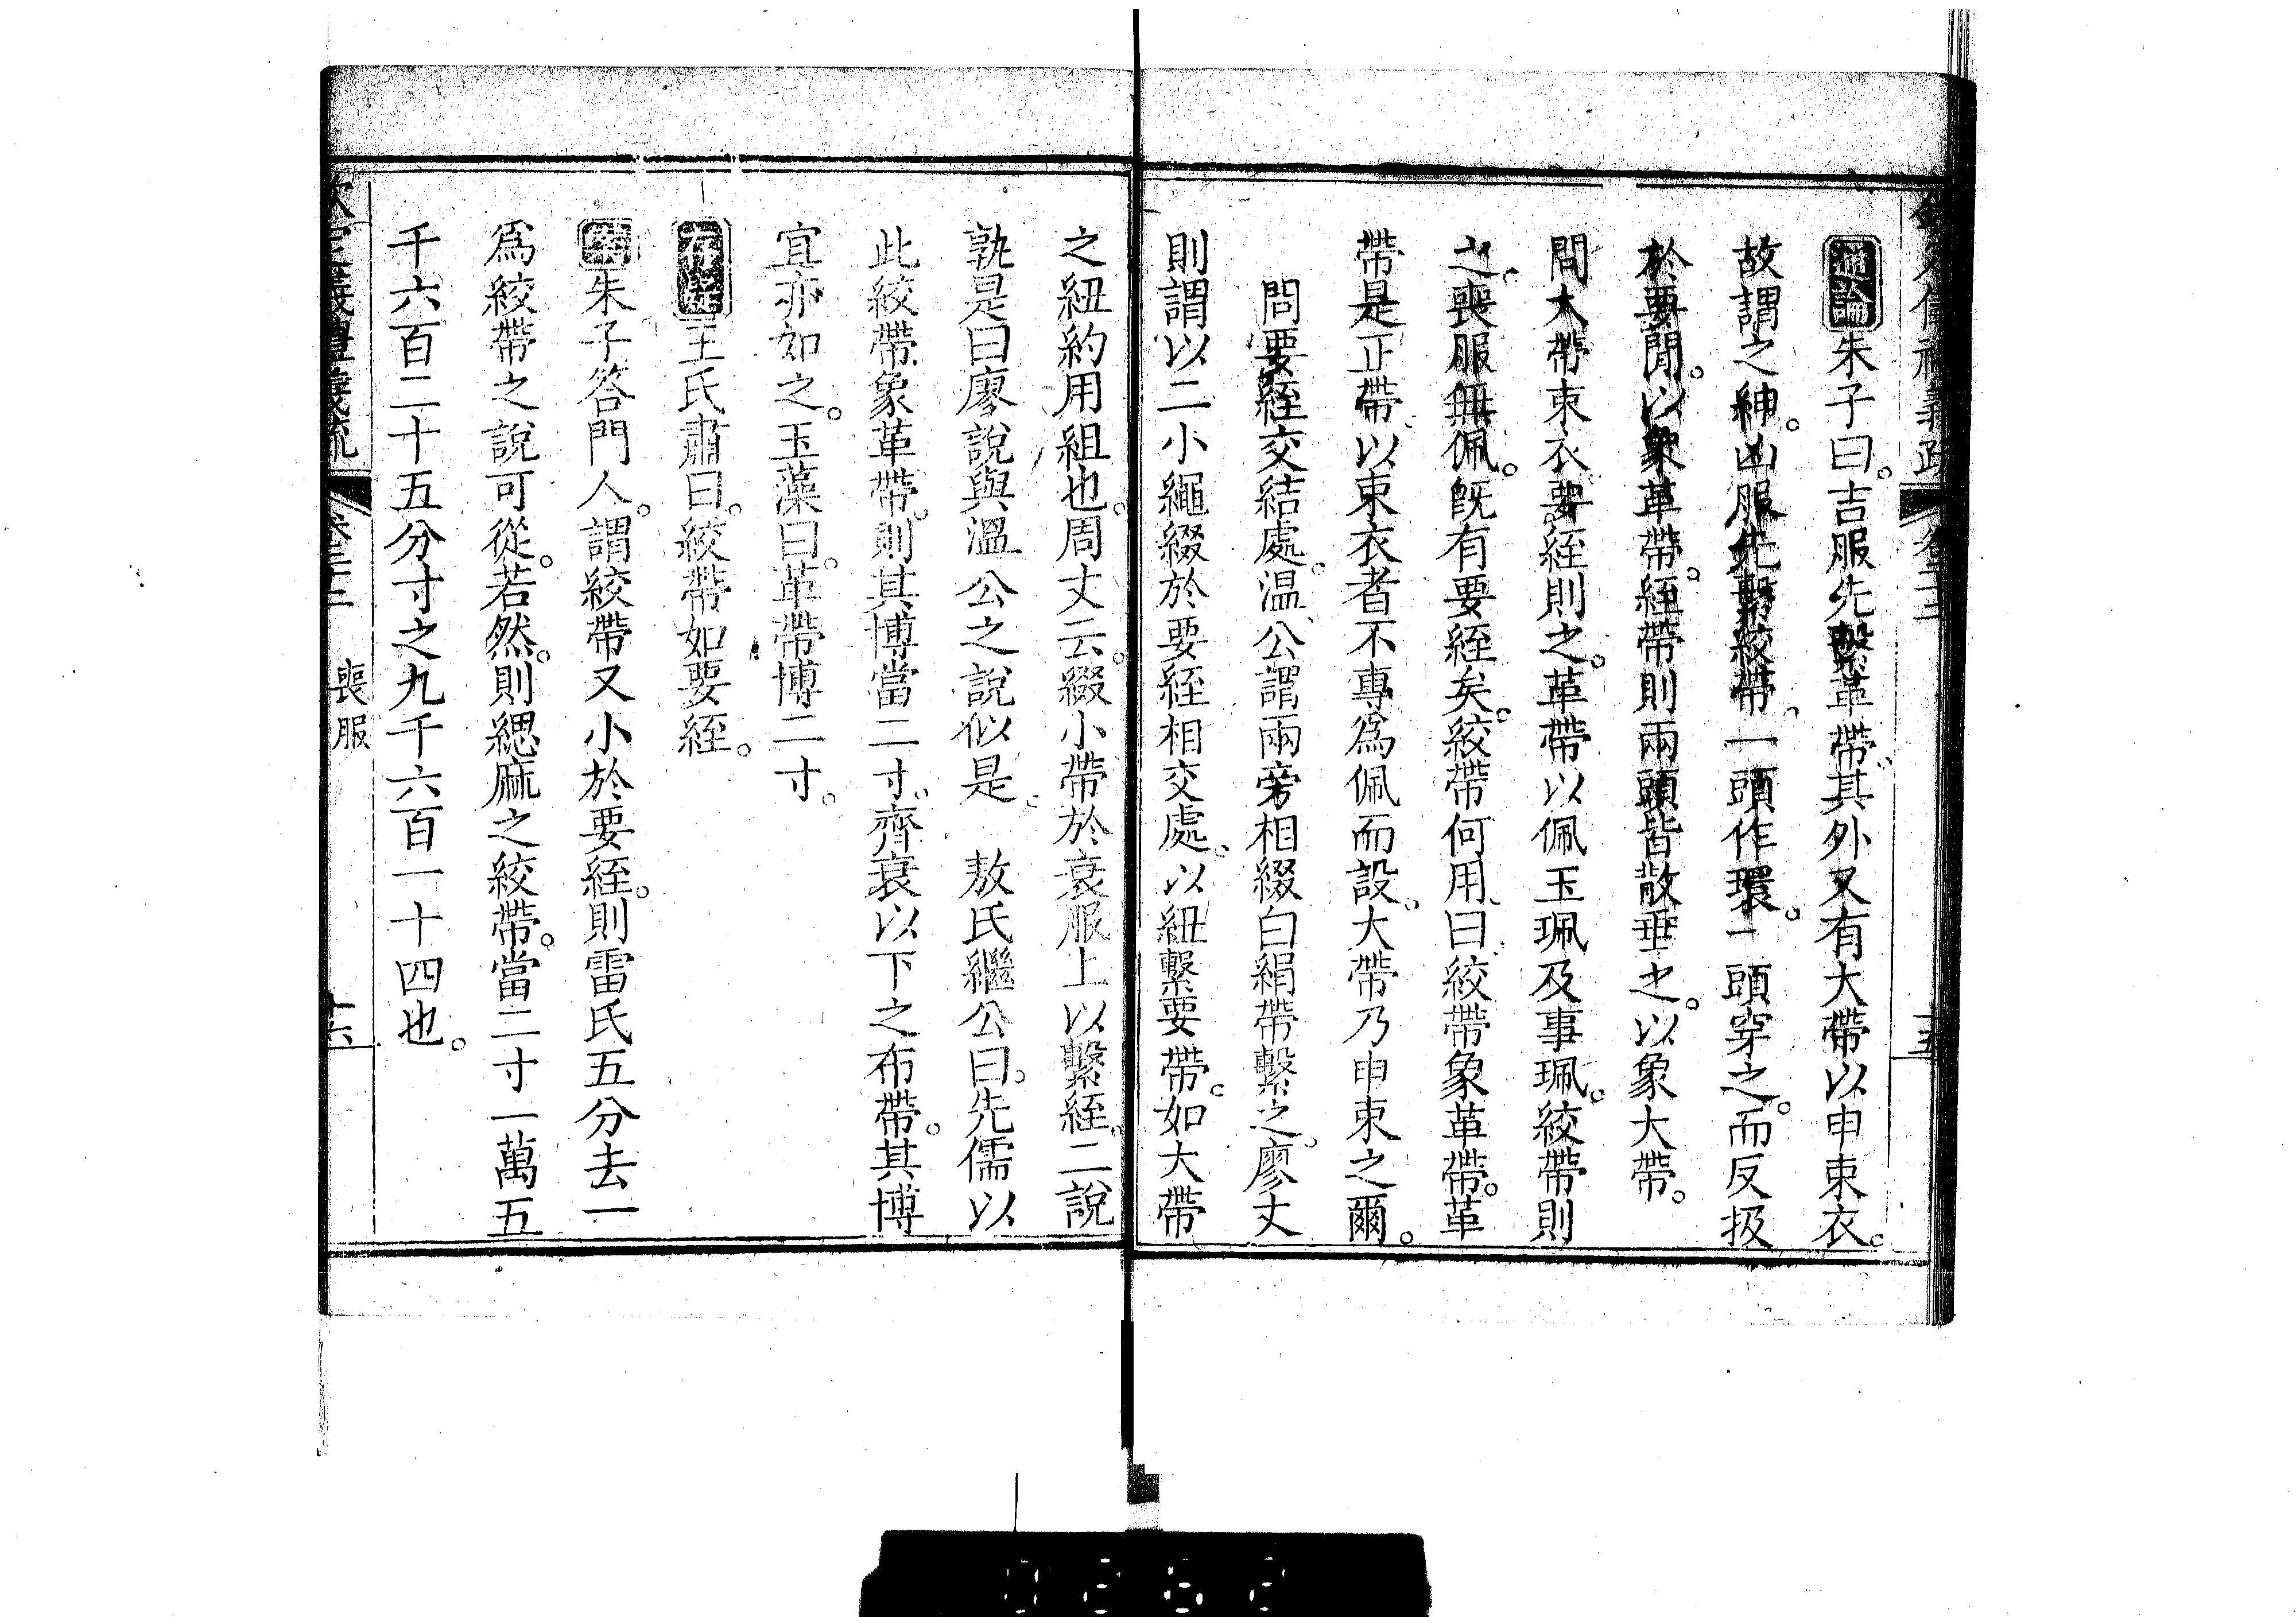 通論朱子曰。吉服先繫革帶。其外又有大帶以申束衣。
故謂之紳。凶服先繫絞帶。一頭作環。一頭穿之。而反扱
於要閒。以象革帶。絰帶則兩頭皆散垂之。以象大帶。
問大帶束衣。要絰則之。革帶以佩玉珮及事珮。絞帶則
之。喪服無佩。旣有要絰矣。絞帶何用。曰。絞帶象革帶。革
帶是正帶。以束衣者。不專爲佩而設。大帶乃申束之爾。
問要絰交結處。溫公謂兩旁相綴白絹帶繫之。廖丈
則謂以二小繩綴於要絰相交處。以紐繫要帶。如大帶
之紐約用組也。周丈云。綴小帶於衰服上以繫絰。二說
孰是。曰廖說與溫公之說似是。 敖氏繼公曰。先儒以
此絞帶象革帶。則其博當二寸。齊衰以下之布帶。其博
宜亦如之。玉藻曰。革帶博二寸。
存疑王氏肅曰。絞帶如要絰。
案朱子答門人。謂絞帶又小於要絰。則雷氏五分去一
爲絞帶之說可從。若然。則緦麻之絞帶。當二寸一萬五
千六百二十五分寸之九千六百一十四也。
欽定儀禮義疏 卷二十二 喪服 十六